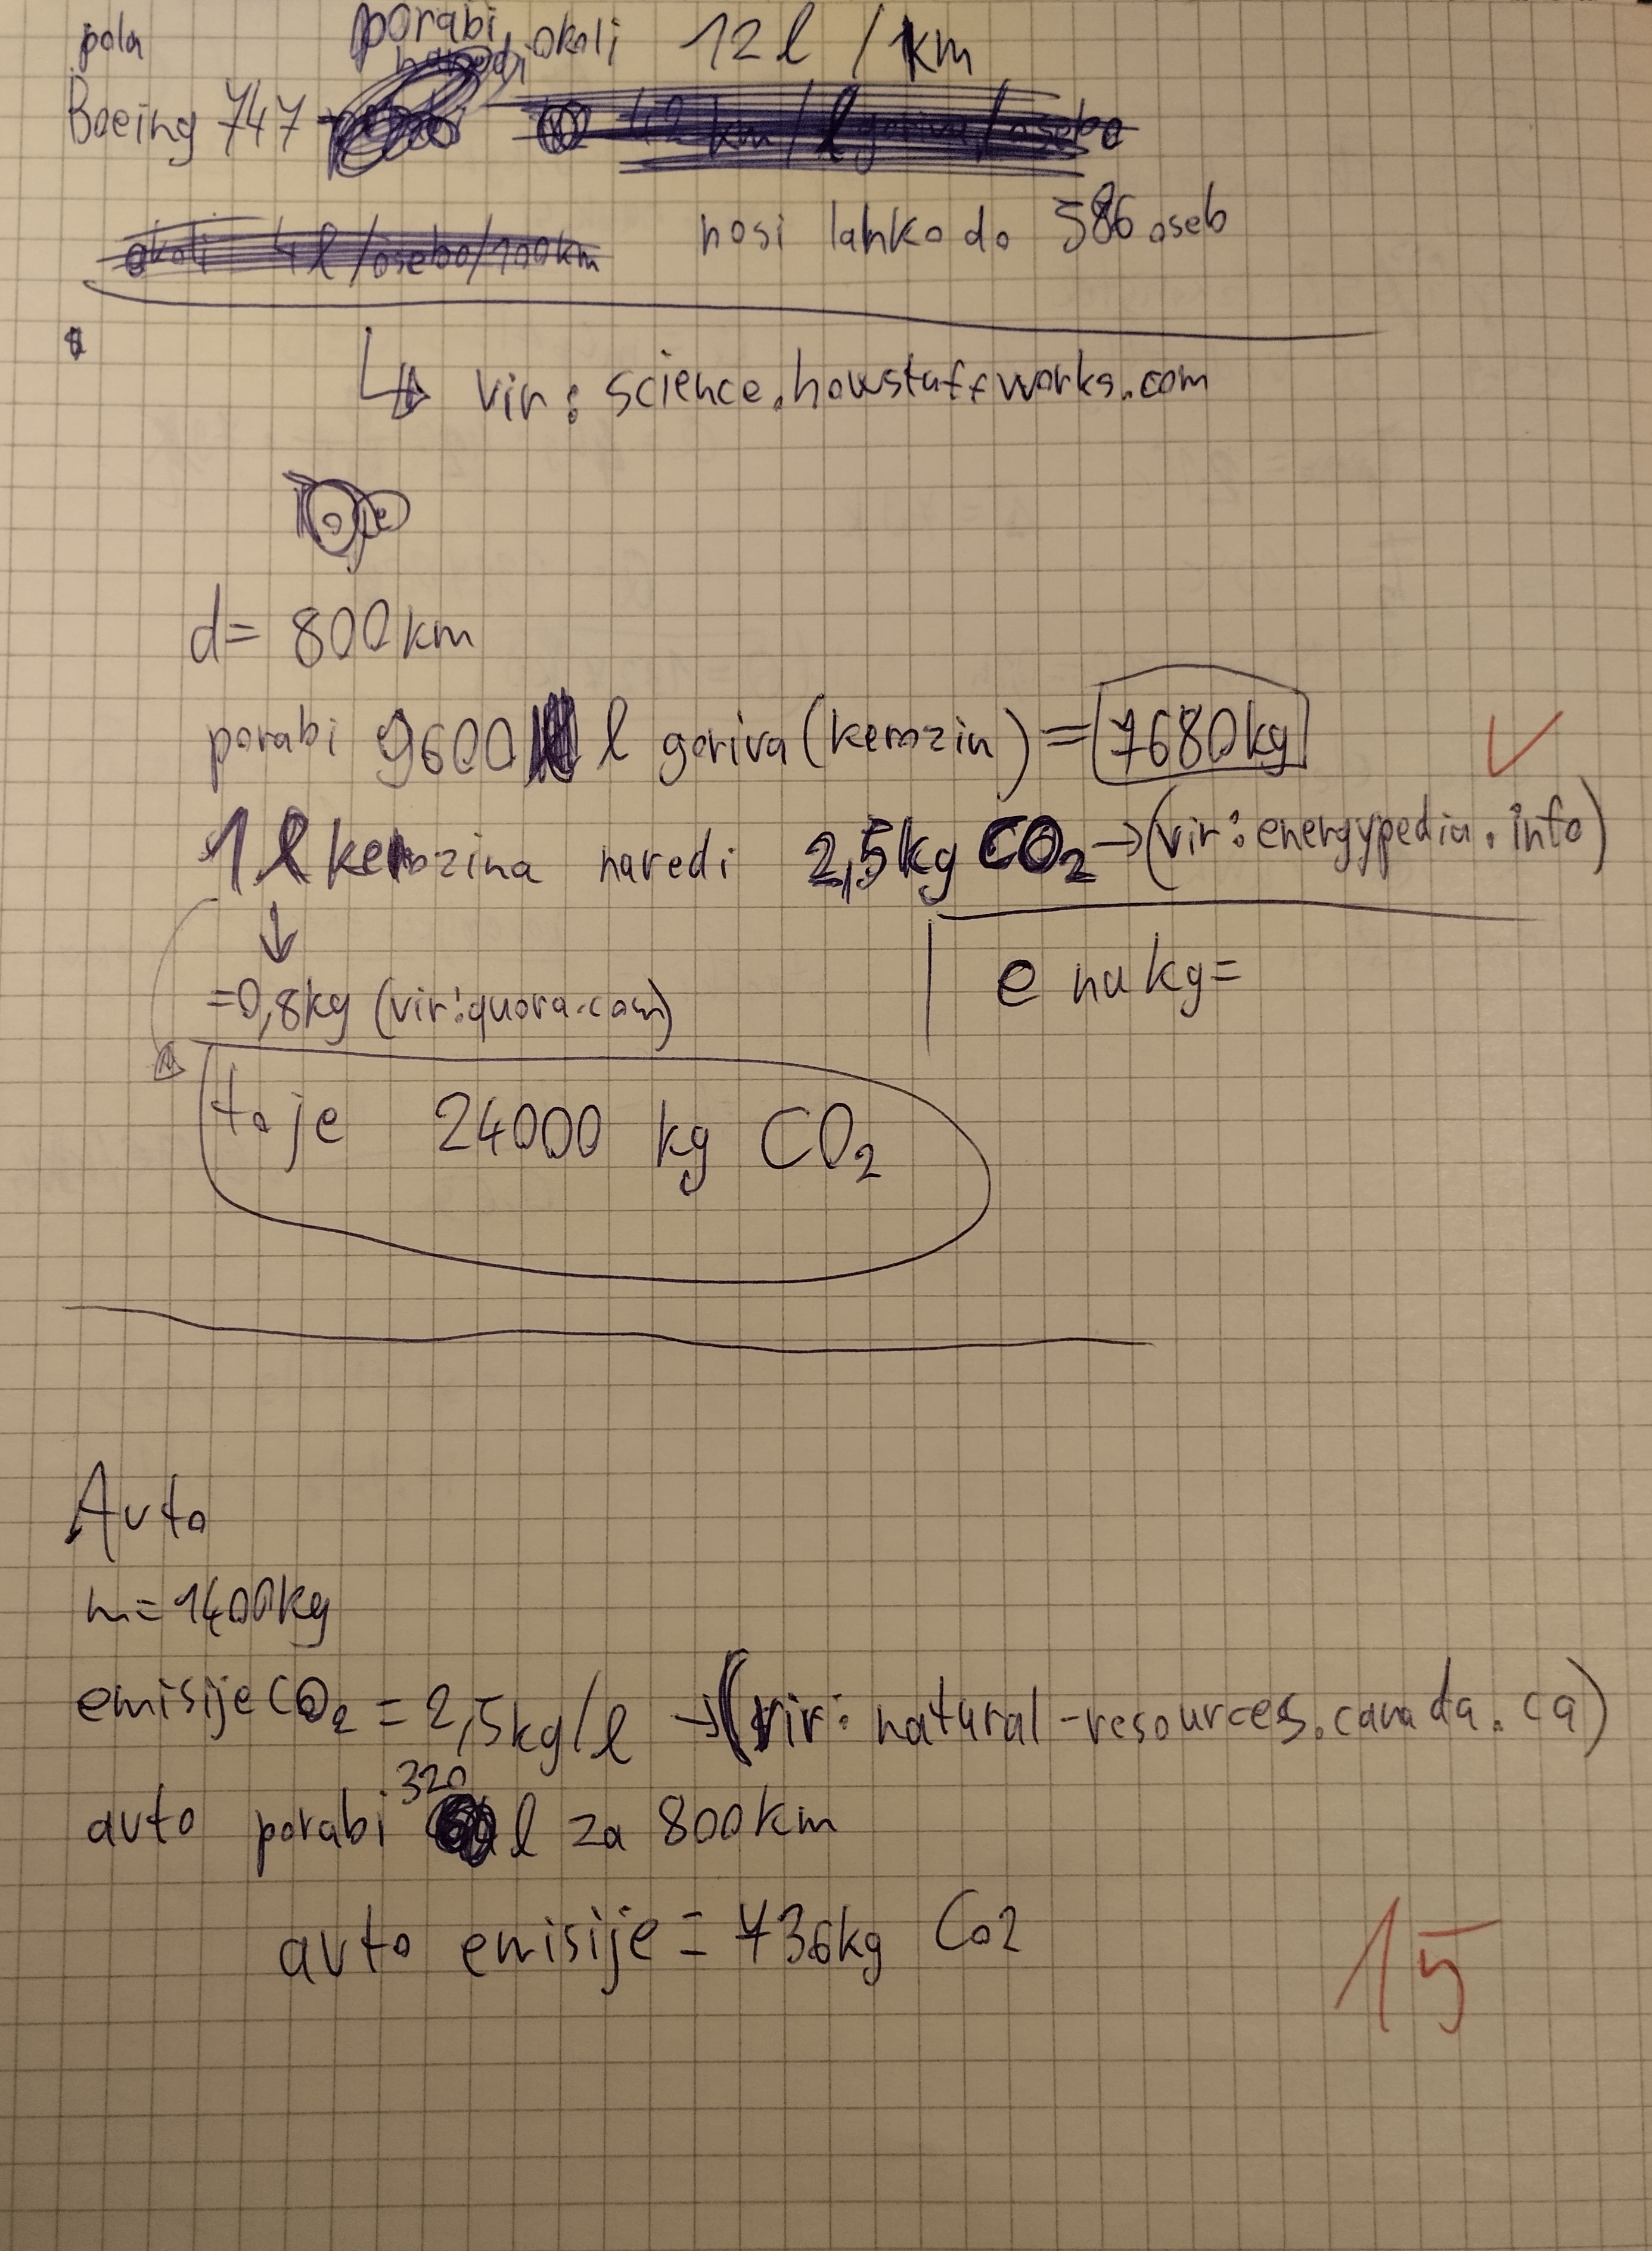 poln porabi okoli 12 l / 1km
Boeing 747
okoli 4 l /osebo/100km nosi lahko do 586 oseb
vir: science.howstuffworks.com
d= 800km
porabi 9600 l goriva (kerozin) = 7680kg
1 l kerozina naredi 2,5kg CO2 → (vir: energypedia.info)
↓
=0,8kg (vir: quora.com) e na kg=
to je 24000 kg CO2
Avto
m=1400kg
emisije CO2 = 2,5kg/l → (vir: natural-resources.canada.ca)
320
avto porabi l za 800km
avto emisije = 736kg Co2
15